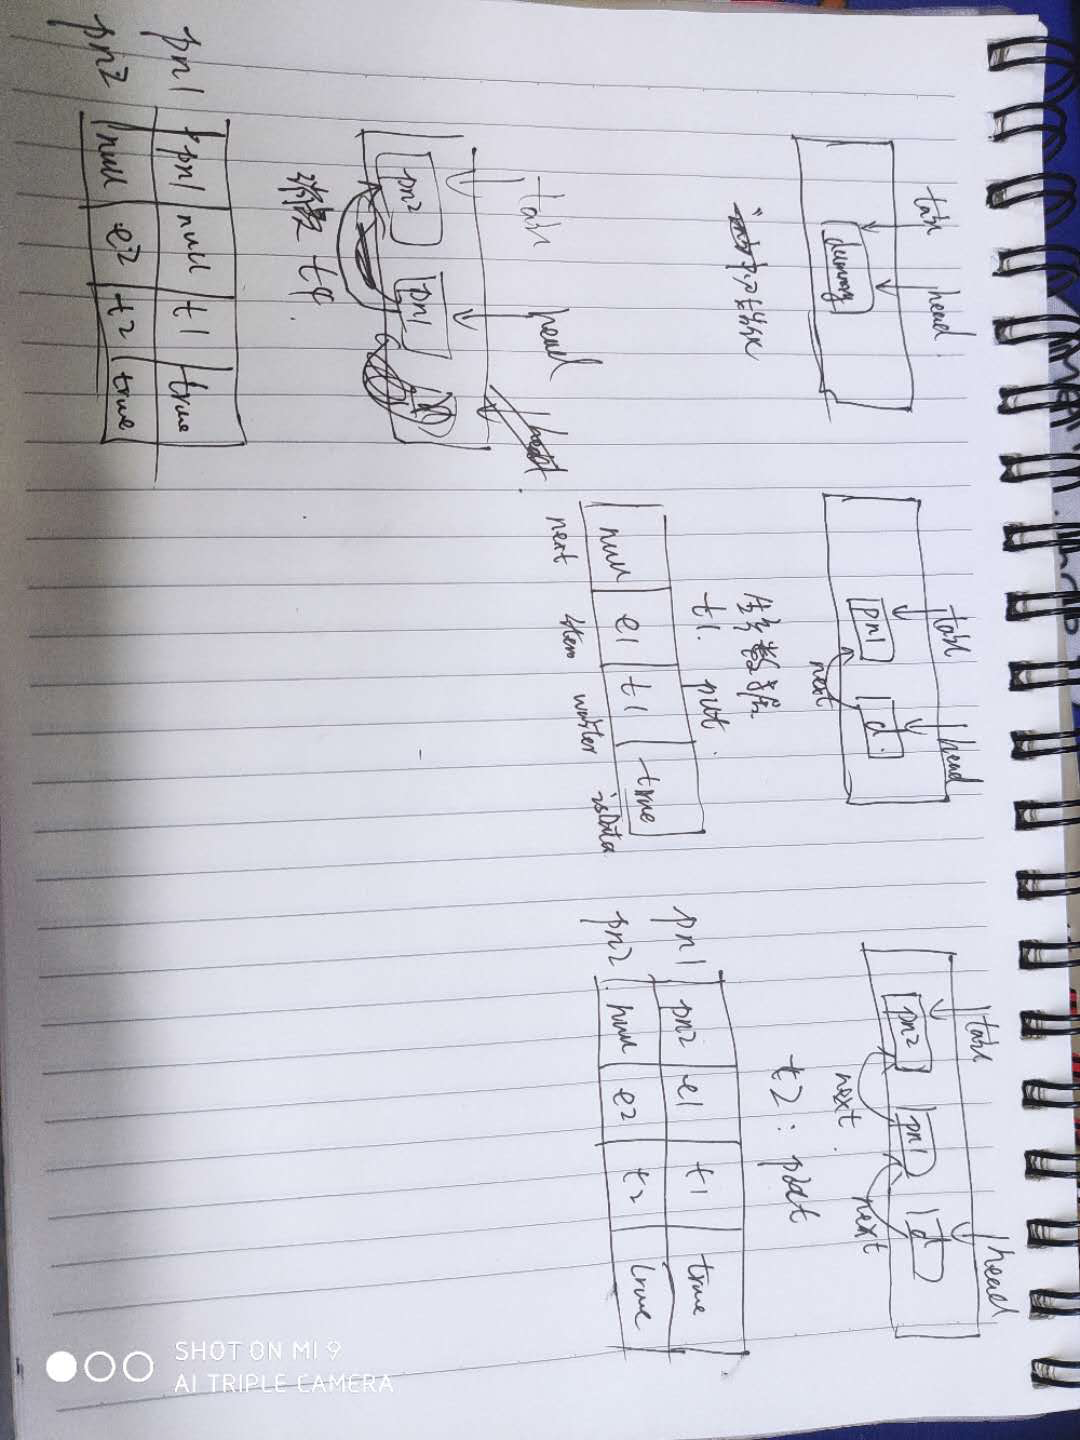 tail head
dummy
初始状态
tail head
pn1 d
next
生产数据
t1. put
null e1 t1 true
next item waiter isData
tail head
pn2 pn1 d
next next
t2: put
pn1 pn2 e1 t1 true
pn2 null e2 t2 true
tail head
pn2 pn1
消费 t9
pn1 pn1 null t1 true
pn2 null e2 t2 true
SHOT ON MI 9
AI TRIPLE CAMERA